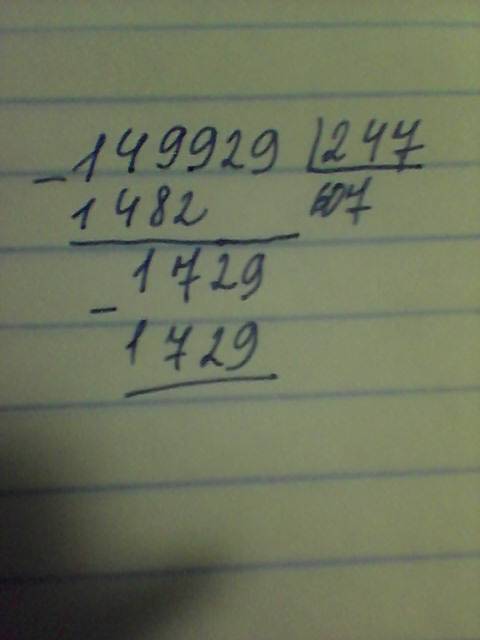 - 149929 | 247
1482 607
1729
- 1729